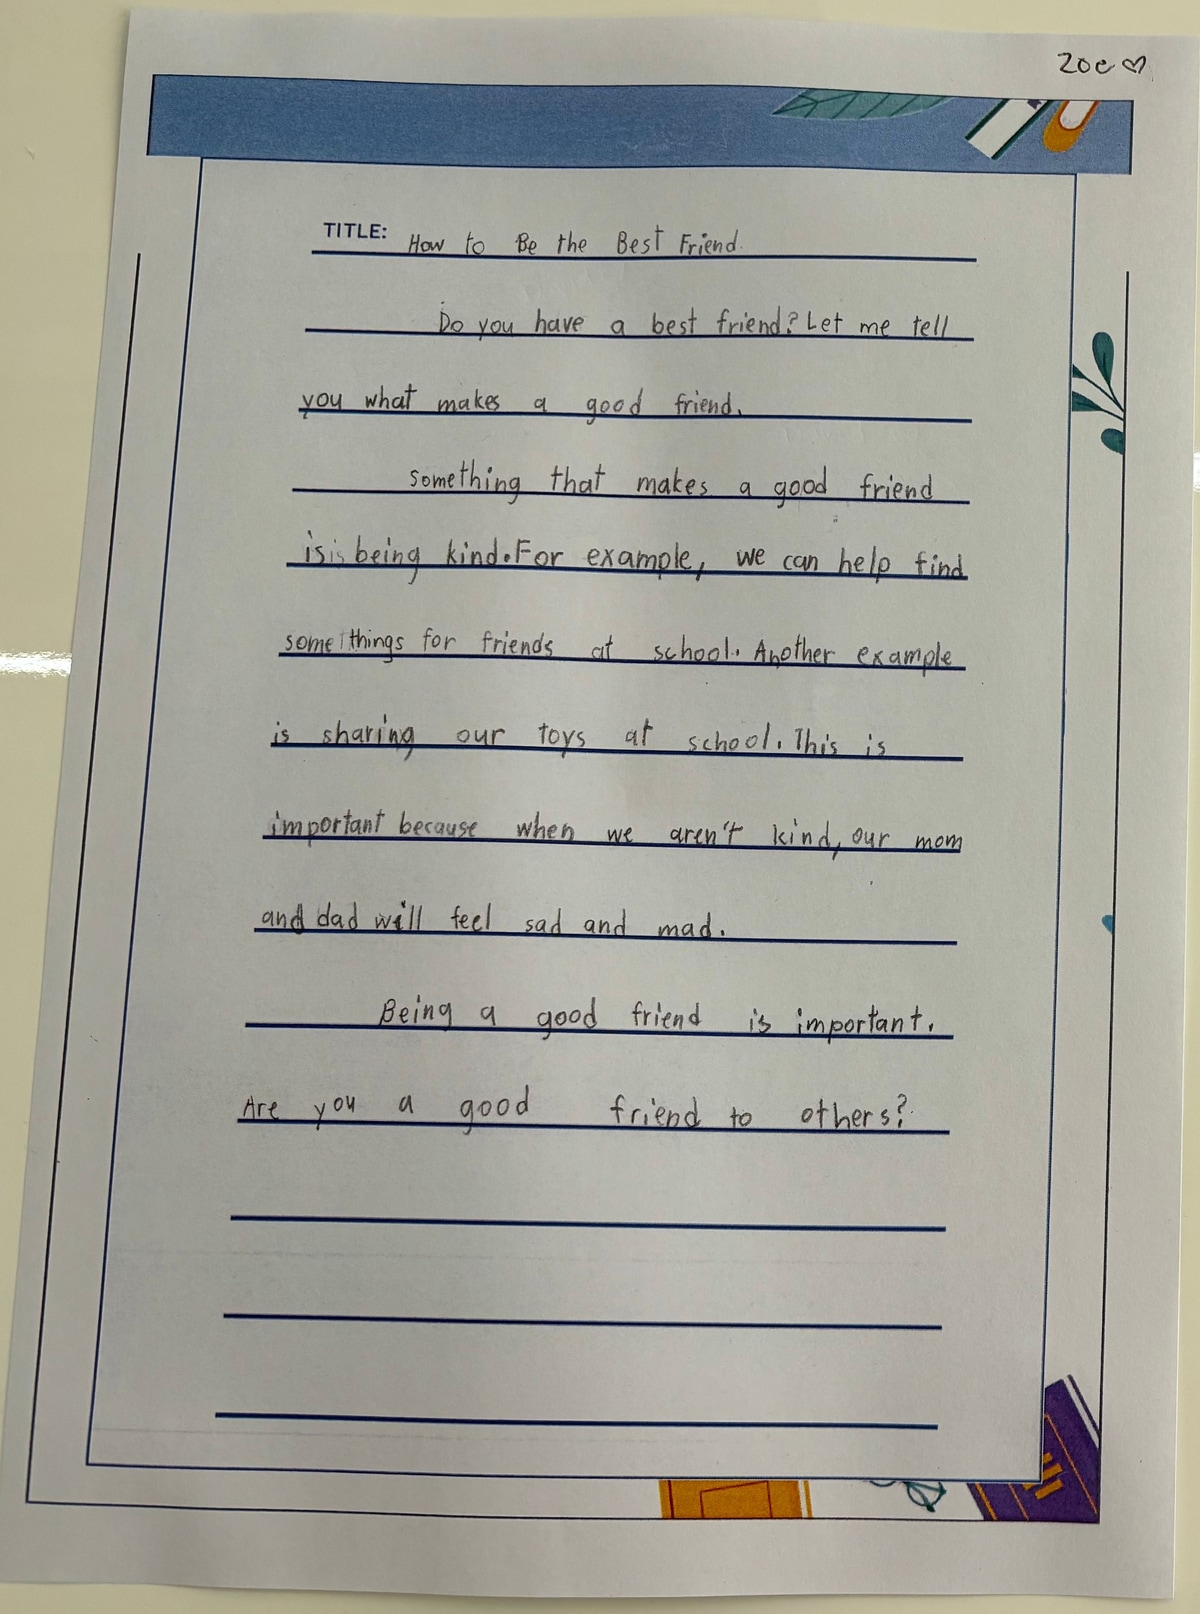 Zoe ♡
TITLE: How to Be the Best Friend.
Do you have a best friend? Let me tell
you what makes a good friend.
something that makes a good friend
is is being kind. For example, we can help find
some things for friends at school. Another example
is sharing our toys at school. This is
important because when we aren't kind, our mom
and dad will feel sad and mad.
Being a good friend is important.
Are you a good friend to others?